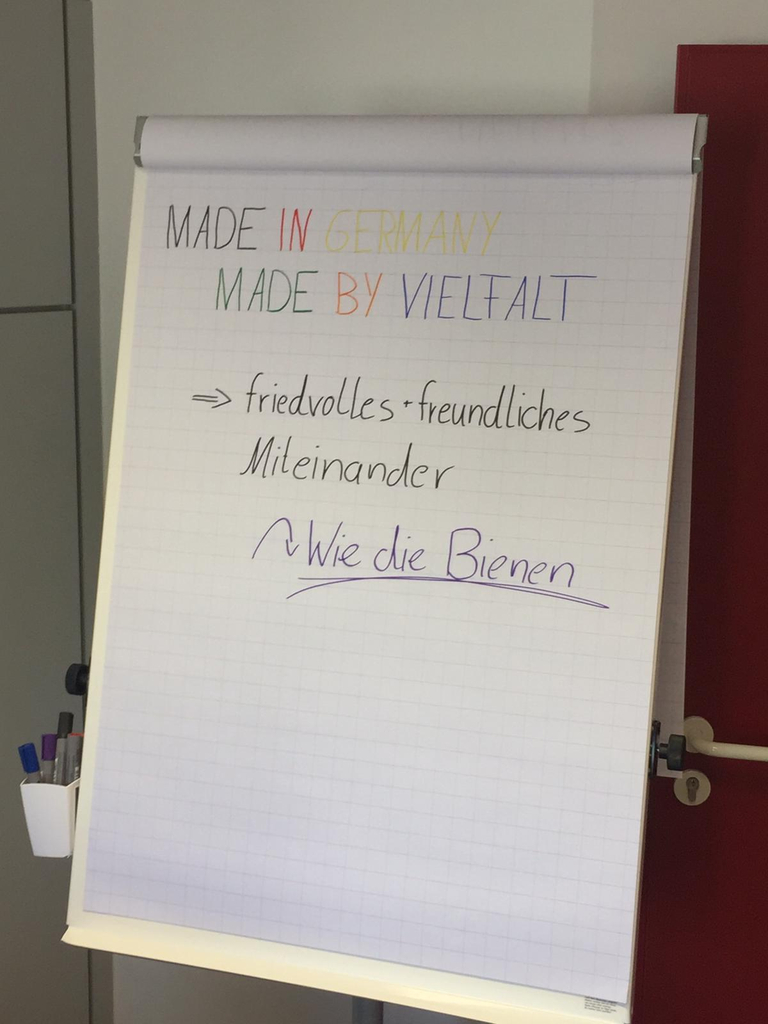 MADE IN GERMANY
MADE BY VIELFALT
⇒ friedvolles + freundliches
Miteinander
Wie die Bienen